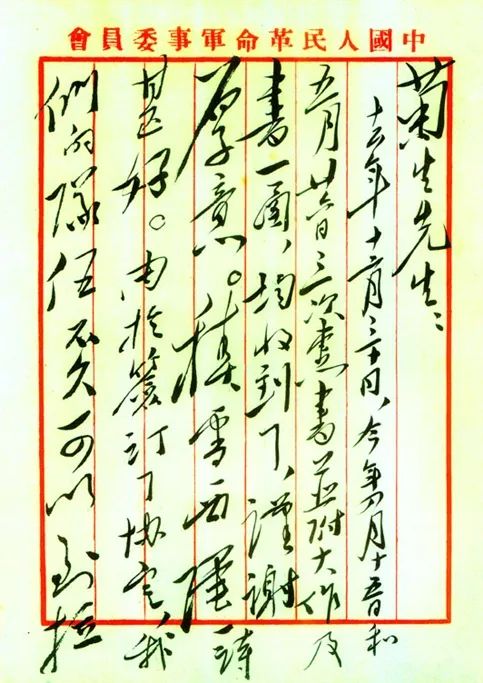 中國人民革命軍事委員會
菊生先生：
去年十二月三十日、今年四月十五日和
五月廿六日三次惠書並附大作及
書一函，均收到了，謹謝
厚意。積雪西陲一詩
甚好。由於簽訂了協定，我
們的隊伍不久可以到拉